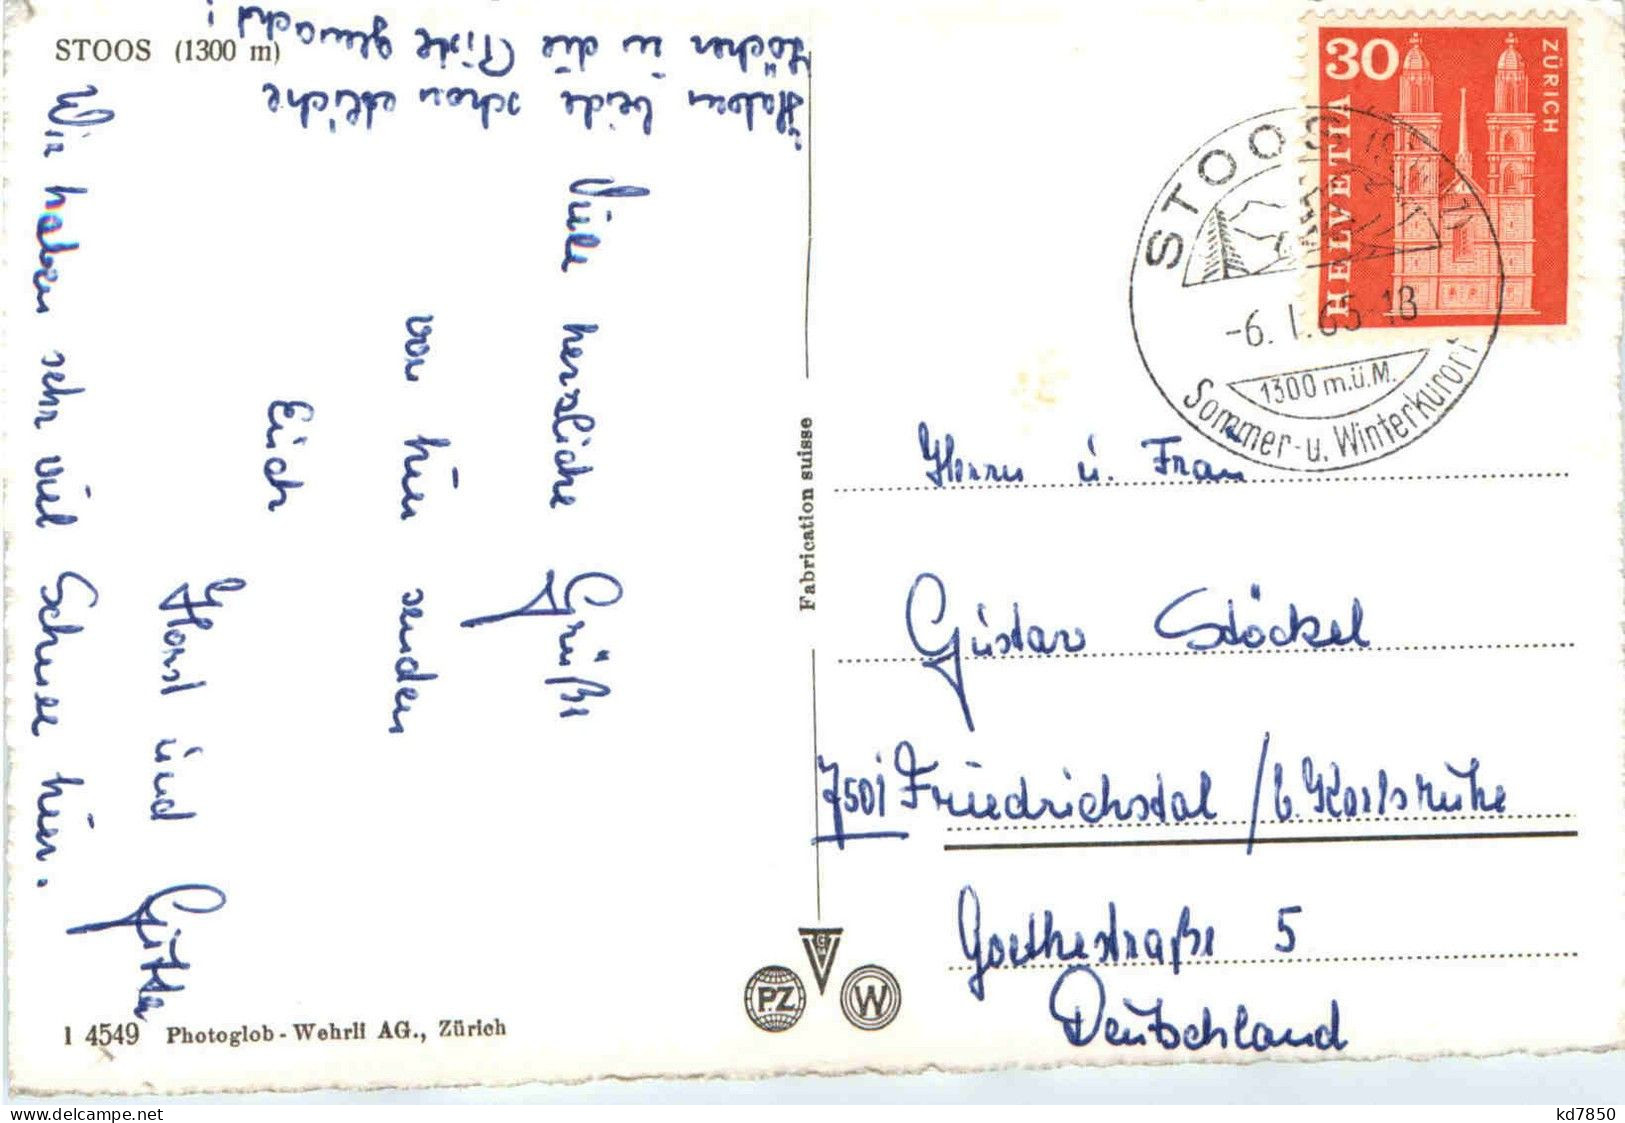 STOOS (1300 m)
Viele herzliche Grüße
von hier senden
Euch
Horst und
Wir haben sehr viel Schnee hier.
Haben beide schon etliche
Löcher in die Piste gemacht!
Fabrication suisse
30
HELVETIA
ZÜRICH
STOOS
-6. I. 65-18
1300 m.ü.M.
Sommer- u. Winterkurort
Herrn u. Frau
Gustav Stöckel
7501 Friedrichstal / b. Karlsruhe
Goethestraße 5
Deutschland
PZ
W
1 4549 Photoglob-Wehrli AG., Zürich
kd7850